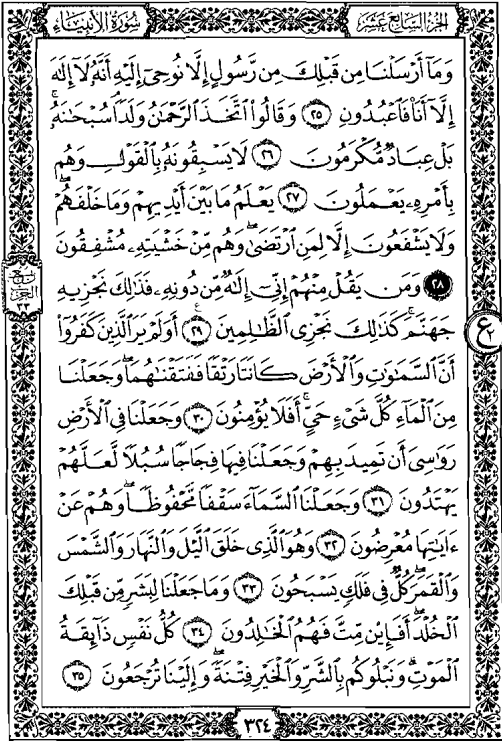 الجزء السابع عشر
سورة الأنبياء
وَمَآ أَرْسَلْنَا مِن قَبْلِكَ مِن رَّسُولٍ إِلَّا نُوحِىٓ إِلَيْهِ أَنَّهُۥ لَآ إِلَٰهَ
إِلَّآ أَنَا۠ فَٱعْبُدُونِ ٢٥ وَقَالُوا۟ ٱتَّخَذَ ٱلرَّحْمَٰنُ وَلَدًا ۗ سُبْحَٰنَهُۥ ۚ
بَلْ عِبَادٌ مُّكْرَمُونَ ٢٦ لَا يَسْبِقُونَهُۥ بِٱلْقَوْلِ وَهُم
بِأَمْرِهِۦ يَعْمَلُونَ ٢٧ يَعْلَمُ مَا بَيْنَ أَيْدِيهِمْ وَمَا خَلْفَهُمْ
وَلَا يَشْفَعُونَ إِلَّا لِمَنِ ٱرْتَضَىٰ وَهُم مِّنْ خَشْيَتِهِۦ مُشْفِقُونَ
٢٨ وَمَن يَقُلْ مِنْهُمْ إِنِّىٓ إِلَٰهٌ مِّن دُونِهِۦ فَذَٰلِكَ نَجْزِيهِ
جَهَنَّمَ ۚ كَذَٰلِكَ نَجْزِى ٱلظَّٰلِمِينَ ٢٩ أَوَلَمْ يَرَ ٱلَّذِينَ كَفَرُوٓا۟
أَنَّ ٱلسَّمَٰوَٰتِ وَٱلْأَرْضَ كَانَتَا رَتْقًا فَفَتَقْنَٰهُمَا ۖ وَجَعَلْنَا
مِنَ ٱلْمَآءِ كُلَّ شَىْءٍ حَىٍّ ۖ أَفَلَا يُؤْمِنُونَ ٣٠ وَجَعَلْنَا فِى ٱلْأَرْضِ
رَوَٰسِىَ أَن تَمِيدَ بِهِمْ وَجَعَلْنَا فِيهَا فِجَاجًا سُبُلًا لَّعَلَّهُمْ
يَهْتَدُونَ ٣١ وَجَعَلْنَا ٱلسَّمَآءَ سَقْفًا مَّحْفُوظًا ۖ وَهُمْ عَنْ
ءَايَٰتِهَا مُعْرِضُونَ ٣٢ وَهُوَ ٱلَّذِى خَلَقَ ٱلَّيْلَ وَٱلنَّهَارَ وَٱلشَّمْسَ
وَٱلْقَمَرَ ۖ كُلٌّ فِى فَلَكٍ يَسْبَحُونَ ٣٣ وَمَا جَعَلْنَا لِبَشَرٍ مِّن قَبْلِكَ
ٱلْخُلْدَ ۖ أَفَإِي۟ن مِّتَّ فَهُمُ ٱلْخَٰلِدُونَ ٣٤ كُلُّ نَفْسٍ ذَآئِقَةُ
ٱلْمَوْتِ ۗ وَنَبْلُوكُم بِٱلشَّرِّ وَٱلْخَيْرِ فِتْنَةً ۖ وَإِلَيْنَا تُرْجَعُونَ ٣٥
ربع
الجزء
ع
٣٢٤